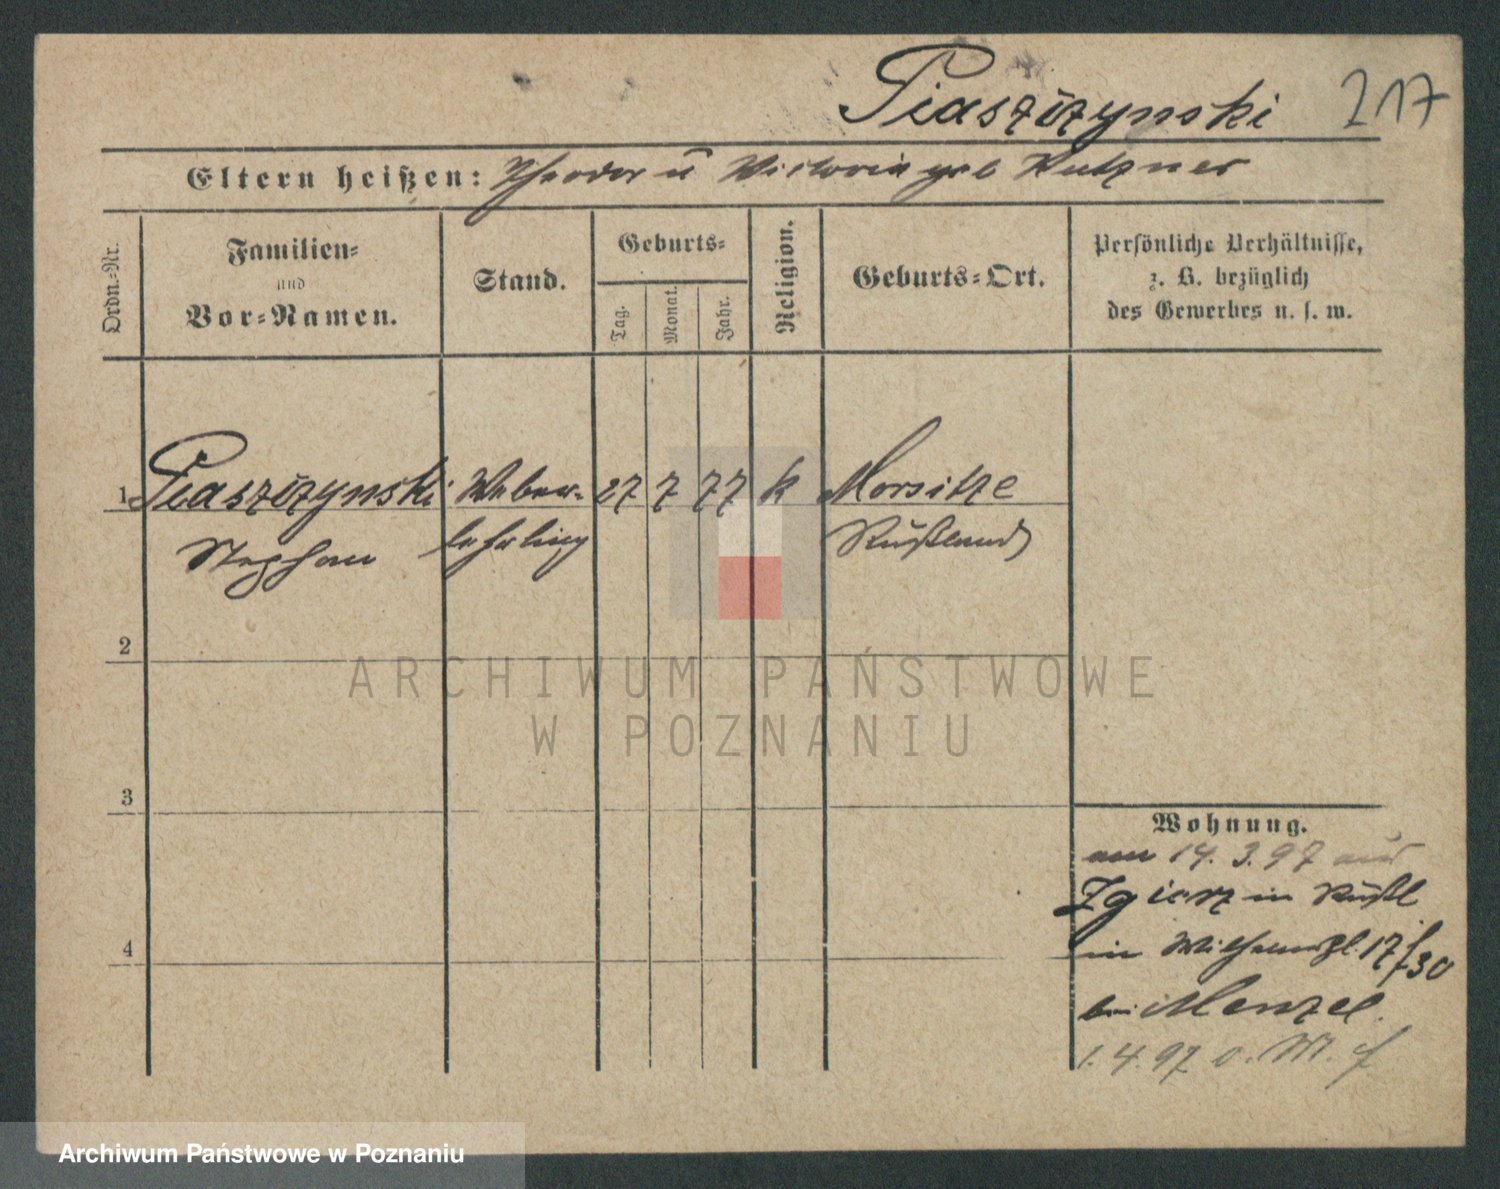 Piaszczynski 217
Eltern heißen: Theodor u Victoria geb Kutzner
Ordn.-Nr.
Familien-
und
Vor-Namen.
Stand.
Geburts-
Tag.
Monat.
Jahr.
Religion.
Geburts-Ort.
Persönliche Verhältnisse,
z. B. bezüglich
des Gewerbes u. s. w.
1 Piaszczynski Weber- 27 7 77 k Morsitze
Stephan lehrling Rußland
2
ARCHIWUM PAŃSTWOWE
W POZNANIU
3
Wohnung.
am 14. 3. 97 aus
Zgierz in Rußl
in 17/30
bei Menzel.
4
1. 4. 97
Archiwum Państwowe w Poznaniu